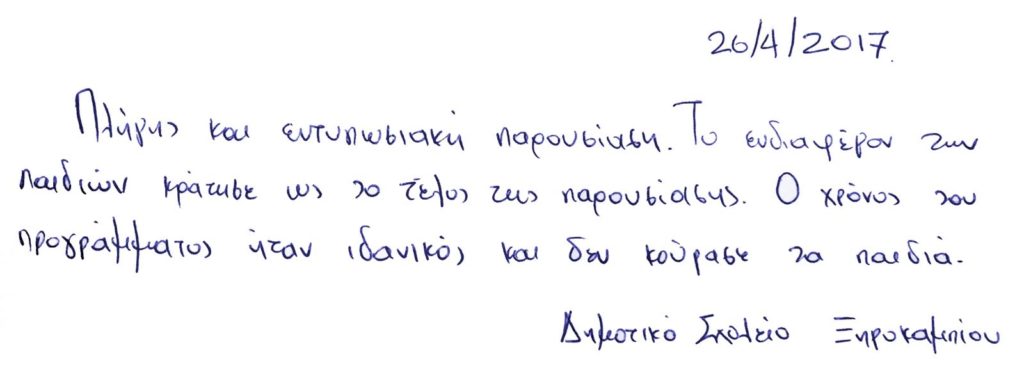 26/4/2017
Πλήρης και εντυπωσιακή παρουσίαση. Το ενδιαφέρον των
παιδιών κράτησε ως το τέλος της παρουσίασης. Ο χρόνος του
προγράμματος ήταν ιδανικός και δεν κούρασε τα παιδιά.
Δημοτικό Σχολείο Ξηροκαμπίου